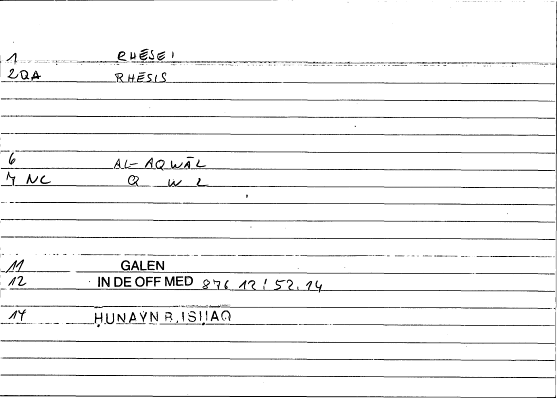 1 RHĒSEI
2 QA RHĒSIS
6 AL-AQWĀL
7 NC Q W L
11 GALEN
12 IN DE OFF MED 876 12 / 52.14
14 ḤUNAYN B. ISḤĀQ